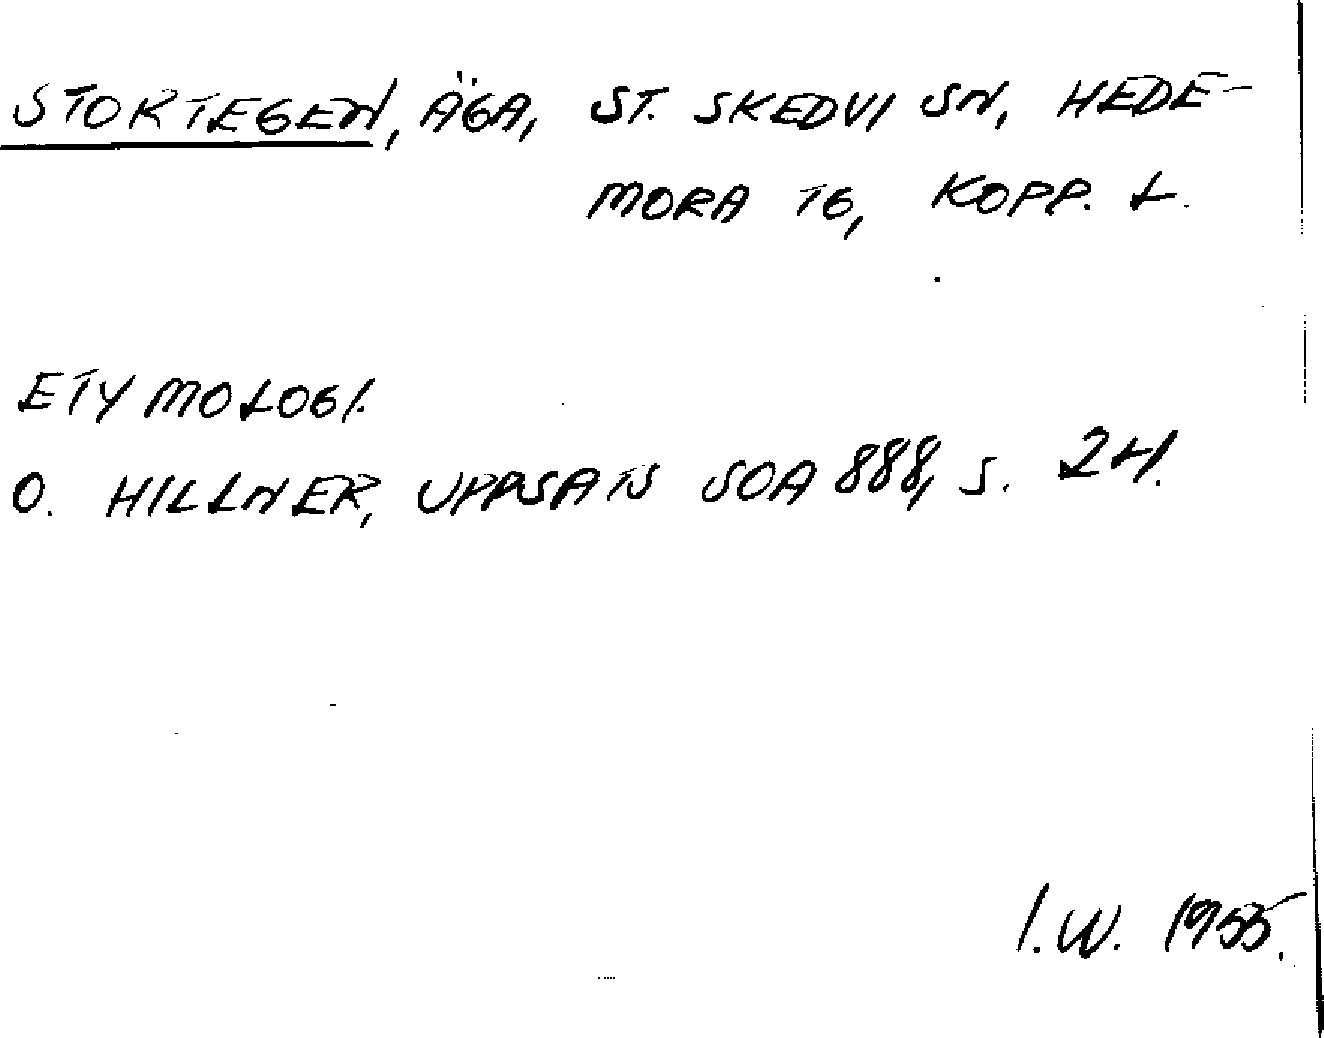 STORTEGEN, ÄGA, ST. SKEDVI SN, HEDE-
MORA TG, KOPP. L.
ETYMOLOGI.
O. HILLNER, UPPSATS SOA 888, S. 24.
I.W. 1955.